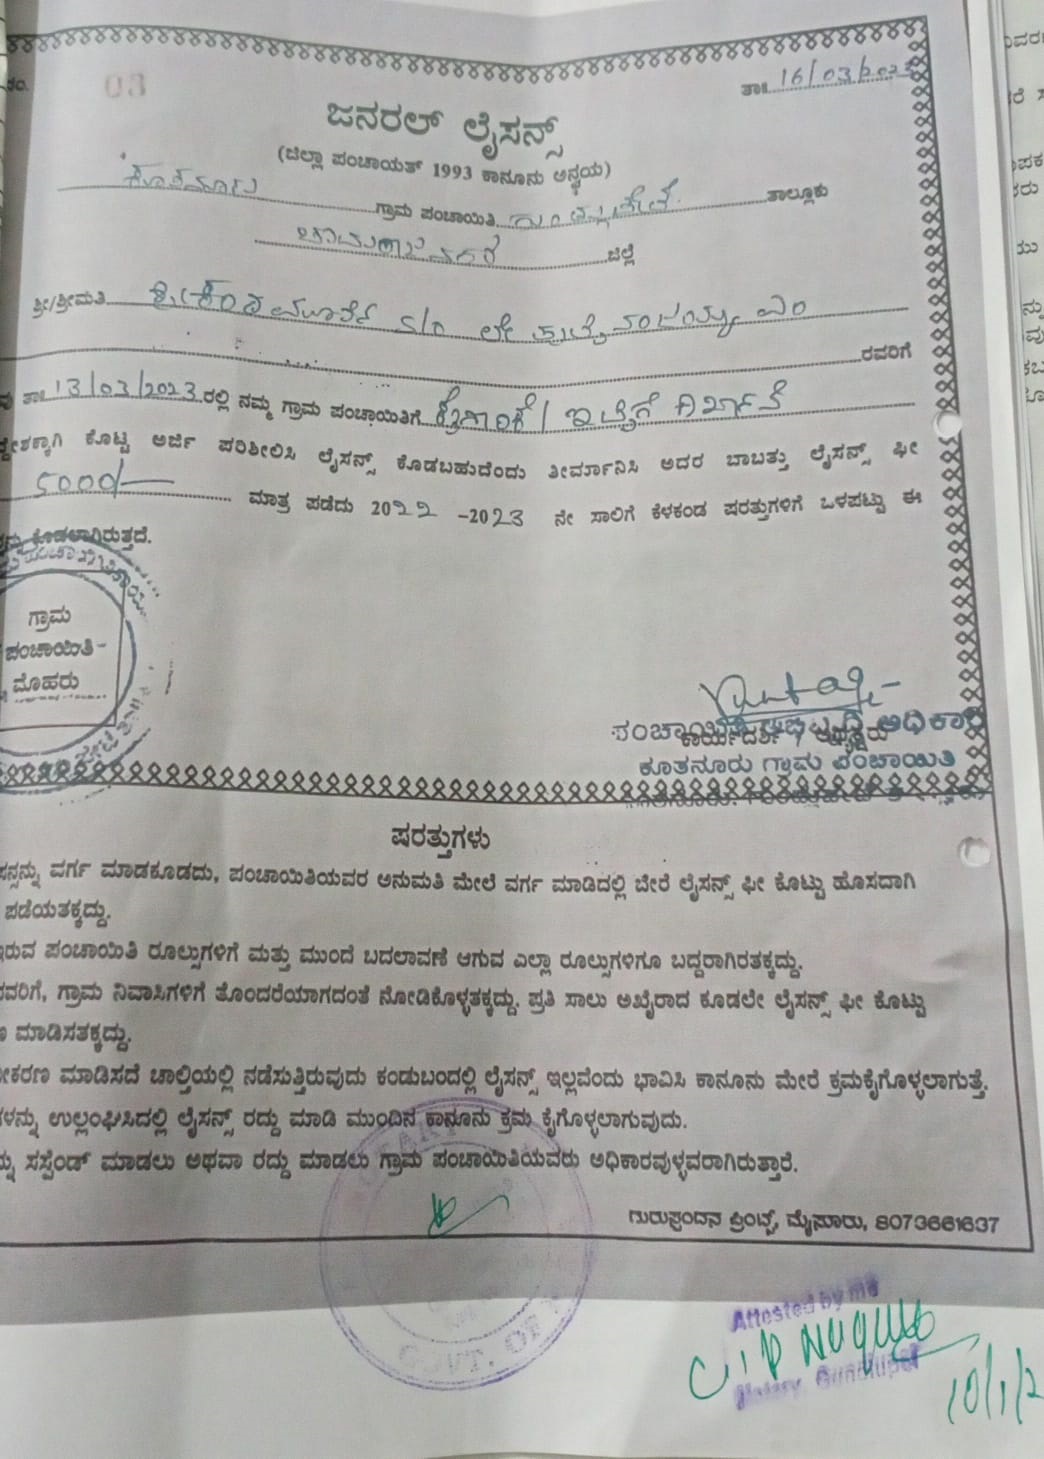 ನಂ. 03
ತಾ॥ 16/03/2023
ಜನರಲ್ ಲೈಸನ್ಸ್
(ಜಿಲ್ಲಾ ಪಂಚಾಯತ್ 1993 ಕಾನೂನು ಅನ್ವಯ)
ಗ್ರಾಮ ಪಂಚಾಯಿತಿ ಗುಂಡ್ಲುಪೇಟೆ ತಾಲ್ಲೂಕು
ಚಾಮರಾಜನಗರ ಜಿಲ್ಲೆ
ಶ್ರೀ/ಶ್ರೀಮತಿ ಶ್ರೀಕಂಠಮೂರ್ತಿ S/o ಲೇ ಪುಟ್ಟನಂಜಯ್ಯ ಎಂ
ರವರಿಗೆ
ತಾ॥ 13/03/2023 ರಲ್ಲಿ ನಮ್ಮ ಗ್ರಾಮ ಪಂಚಾಯಿತಿಗೆ / ಇಟ್ಟಿಗೆ
ಕೊಟ್ಟ ಅರ್ಜಿ ಪರಿಶೀಲಿಸಿ ಲೈಸನ್ಸ್ ಕೊಡಬಹುದೆಂದು ತೀರ್ಮಾನಿಸಿ ಅದರ ಬಾಬತ್ತು ಲೈಸನ್ಸ್ ಫೀ
5000/- ಮಾತ್ರ ಪಡೆದು 2022 -2023 ನೇ ಸಾಲಿಗೆ ಕೆಳಕಂಡ ಷರತ್ತುಗಳಿಗೆ ಒಳಪಟ್ಟು ಈ
ಕೊಡಲಾಗಿರುತ್ತದೆ.
ಗ್ರಾಮ
ಪಂಚಾಯಿತಿ
ಮೊಹರು
ಪಂಚಾಯಿತಿ ಅಭಿವೃದ್ಧಿ ಅಧಿಕಾರಿ
ಕಾರ್ಯದರ್ಶಿ / ಅಧ್ಯಕ್ಷರು
ಕೂತನೂರು ಗ್ರಾಮ ಪಂಚಾಯಿತಿ
ಷರತ್ತುಗಳು
ವರ್ಗ ಮಾಡಕೂಡದು, ಪಂಚಾಯಿತಿಯವರ ಅನುಮತಿ ಮೇಲೆ ವರ್ಗ ಮಾಡಿದಲ್ಲಿ ಬೇರೆ ಲೈಸನ್ಸ್ ಫೀ ಕೊಟ್ಟು ಹೊಸದಾಗಿ
ಪಡೆಯತಕ್ಕದ್ದು.
ಪಂಚಾಯಿತಿ ರೂಲ್ಸುಗಳಿಗೆ ಮತ್ತು ಮುಂದೆ ಬದಲಾವಣೆ ಆಗುವ ಎಲ್ಲಾ ರೂಲ್ಸುಗಳಿಗೂ ಬದ್ದರಾಗಿರತಕ್ಕದ್ದು.
ಗ್ರಾಮ ನಿವಾಸಿಗಳಿಗೆ ತೊಂದರೆಯಾಗದಂತೆ ನೋಡಿಕೊಳ್ಳತಕ್ಕದ್ದು. ಪ್ರತಿ ಸಾಲು ಅಖೈರಾದ ಕೂಡಲೇ ಲೈಸನ್ಸ್ ಫೀ ಕೊಟ್ಟು
ಮಾಡಿಸತಕ್ಕದ್ದು.
ಮಾಡಿಸದೆ ಚಾಲ್ತಿಯಲ್ಲಿ ನಡೆಸುತ್ತಿರುವುದು ಕಂಡುಬಂದಲ್ಲಿ ಲೈಸನ್ಸ್ ಇಲ್ಲವೆಂದು ಭಾವಿಸಿ ಕಾನೂನು ಮೇರೆ ಕ್ರಮಕೈಗೊಳ್ಳಲಾಗುತ್ತೆ.
ಉಲ್ಲಂಘಿಸಿದಲ್ಲಿ ಲೈಸನ್ಸ್ ರದ್ದು ಮಾಡಿ ಮುಂದಿನ ಕಾನೂನು ಕ್ರಮ ಕೈಗೊಳ್ಳಲಾಗುವುದು.
ಸಸ್ಪೆಂಡ್ ಮಾಡಲು ಅಥವಾ ರದ್ದು ಮಾಡಲು ಗ್ರಾಮ ಪಂಚಾಯಿತಿಯವರು ಅಧಿಕಾರವುಳ್ಳವರಾಗಿರುತ್ತಾರೆ.
ಗುರುಸ್ಪಂದನ ಪ್ರಿಂಟ್ಸ್, ಮೈಸೂರು, 8073661637
NOTARY
GOVT. OF
Attested by me
Notary, Gundlupet